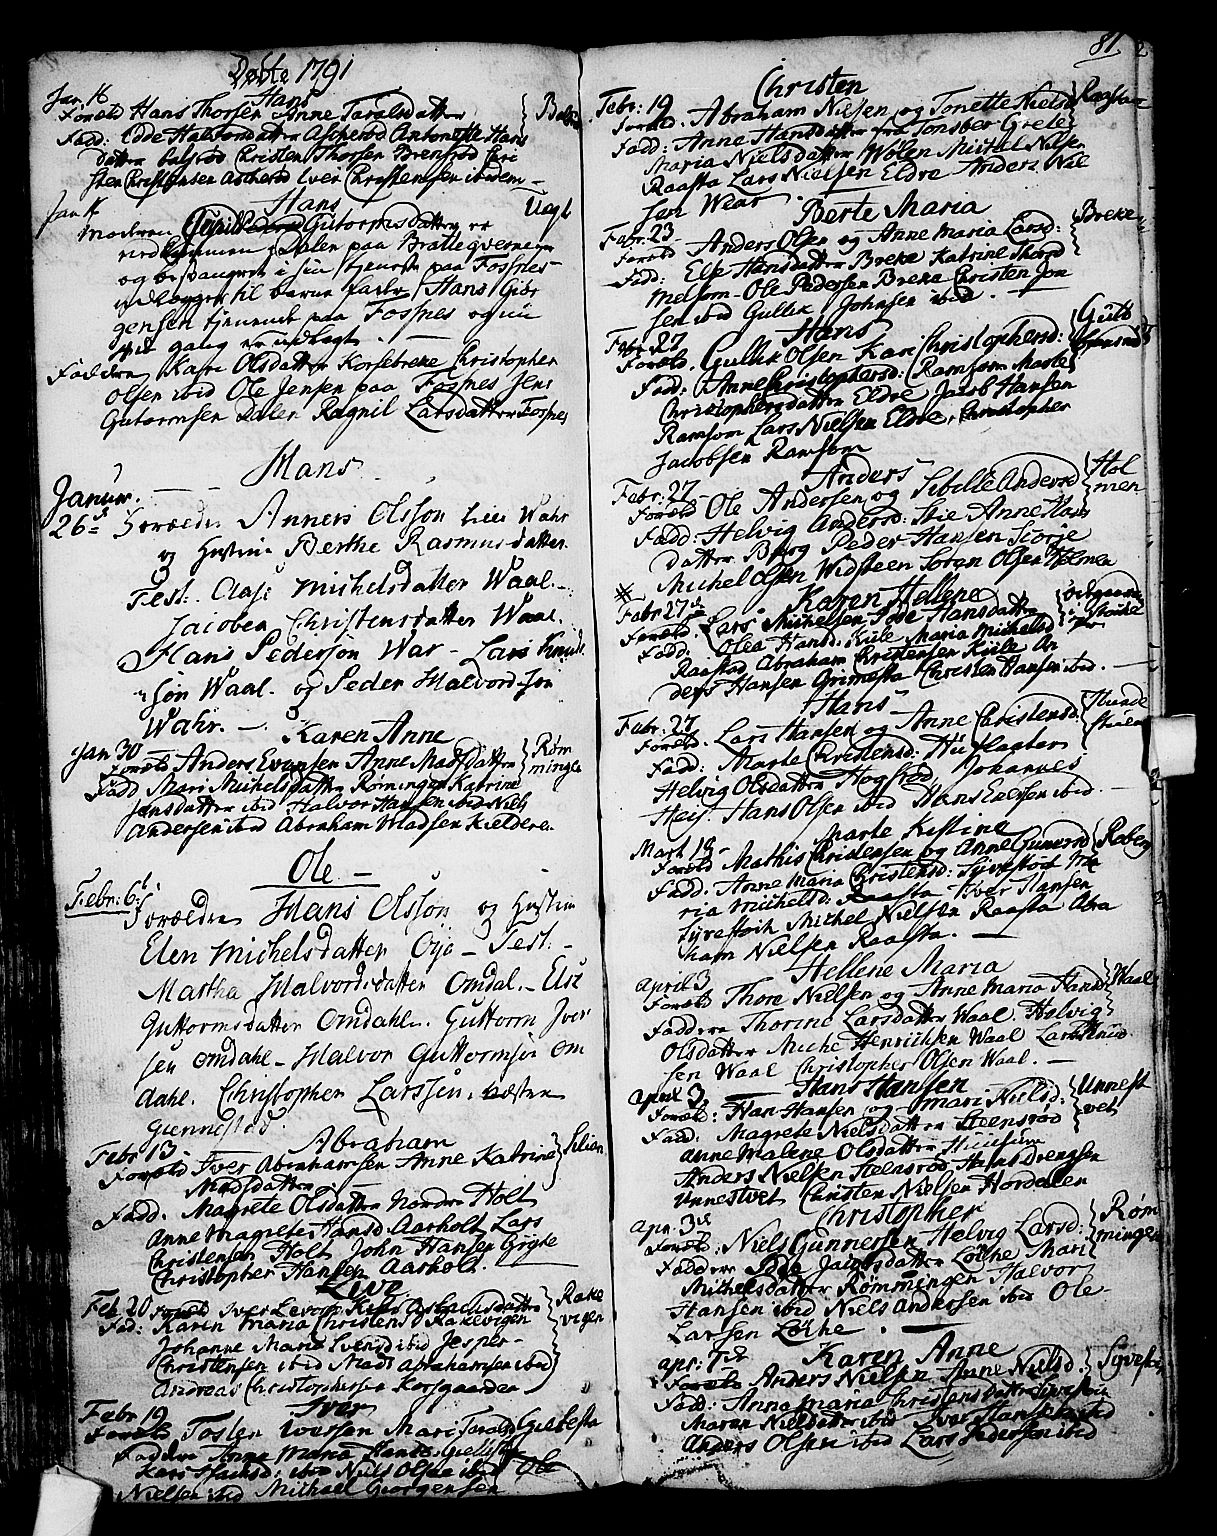 Døbte 1791
Jan. 16 Hans
Foræld Hans Thorsen Anne Taralsdatter
Fadd: Edde Halvorsdatter Ascherød Antonette Hans
datter Christen Thorsen Brensrød Chri
sten Christensen Ascherød Iver Christensen ibidem
Jan. 16 Hans
Moderen Gutormsdatter er
nedkommen i Dalen paa Brattegvernene
og besvangret i sin tjeneste paa Fossnes
udlægger til barne fader Hans Gibr
gensen tjenende paa Fossnes og nu
ved gang er udlagt.
Faddere Kari Olsdatter Korsebreke Christopher
Olsen ibid Ole Jensen paa Fossnes Jens
Gutormsen Dalen Ragnil Larsdatter Fosnes
Hans
Januar.
26d Foræld: Anners Olsson Wahr
og Hustrue Berthe Rasmusdatter.
Test: Aase Michelsdatter Waal.
Jacobea Christensdatter Waal.
Hans Pedersøn War - Lars Knud
søn Waal. og Peder Halvordsøn
Wahr.
Karen Anne
Jan 30 Røm
Foræld Anders Evensen Anne Madsdatter mingen
Fadd Mari Michelsdatter Rømingen Katrine
Jensdatter ibid Halvor Hansen ibid Niels
Andersen ibid Abraham Madsen Kieldere
Ole
Febr: 6t
Forældre Hans Olsson og Hustrue
Elen Michelsdatter Oÿo - Test:
Martha Halvordsdatter Omdal. - Else
Guttormsdatter Omdahl. Guttorm Iver
sen Omdahl - Halvor Guttormsøn Om
dahl. Christopher Larssøn,
Giennestad.
Febr 13 Abraham
Foræld Iver Abrahamsen Anne Katrine
Madsdatter
Fadd. Magrete Olsdatter Nordre Holt
Anne Magrete Hansd Aarholt Lars
Christensen Holt John Hansen Gryte
Christopher Hansen Aarholt.
Live
Feb. 20 Foræld Iver Rake
Fad: Karen Maria Christensd Rakevigen vigen
Johanne Marie Svensd ibid Jesper
Christensen ibid Mads Abrahamsen ibid
Andreas Christophersen Korsgaarden
Febr 19 Iver
Foræld Tosten Iversen Mari Taralsd Gullesta
Faddere Anne Maria Hansd Gullesta
Kari Hansd: ibid Niels Olsen ibid Ole
Nielsen ibid Michael Georgensen
81
Christen
Febr: 19 Raastad
Foræld. Abraham Nielsen og Tonette Nielsd
Fadd: Anne Hansdatter fra Tonsber Grete
Maria Nielsdatter Wølen Michel Nilsen
Raasta Lars Nielsen Eldre Anders Niel
sen Wear
Berte Maria
Febr. 23 Breke
Foræld Anders Olsen og Anne Maria Larsd:
Fadd: Else Hansdatter Breke Katrine Thord
Melsom - Ole Pedersen Breke Christen Jon
sen ibid Gullik Johnsen ibid.
Hans
Febr. 27
Foræld. Gullik Olsen Kari Christophersd:
Fadd: Anne Christophersd: Ramsom Marte
Christophersdatter Eldre Jacob Hansen
Ramsom Lars Nielsen Eldre, Christopher
Jacobsen Ramsom
Anders
Febr. 27 Hol
Foræld Ole Andersen og Sibille Andersd men
Fadd: Helvig Andersd: Skie Anne Hans
datter Berg Peder Hansen Skorje
Michel Olsen Widsteen Soren Olsen Holmen
Karen Hellene
Febr 27d
Foræld. Lars Michelsen Tode Hansdatter
Fadd: Olea Hansd: Kiile Maria Michelsd
Raastad Abraham Christensen Kiile An
ders Hansen Grimesta Christen Hansen ibid.
Hans
Febr. 27
Foræld. Lars Hansen og Anne Christensd.
Fadd: Marte Christensd: Huflaaten
Helvig Olsdatter Hogsrod, Johannes
Hans Olsen ibid Hans Evensen ibid.
Marte Kistine
Mart 18
Foræld Mathis Christensen og Anne Gunersd Raberg
Fadd. Anne Maria Christensd: Syvestok Ma
ria Michelsd. Raasta Iver Hansen
Syvestok Michel Nielsen Raasta Abra
ham Nielsen Raasta.
Hellene Maria
April 3
Foræld Thore Nielsen og Anne Maria Hansd Waal
Faddere Thorine Larsdatter Waal. Helvig
Olsdatter Miche Henrichsen Waal Lars Knud
sen Waal Christopher Olsen Waal.
Hans Hansen
April 3 Unnest
Foræld: Han Hansen og Mari Nielsd: vet
Fadd: Magrete Nielsdatter Steensrød
Anne Malene Olsdatter
Anders Nielsen Helnsrød, Hans Drengsen
Unnestvet Christen Nielsen Hordalen
Christopher
Apr. 3d Røm
Foræld: Niels Gunnersen Helvig Larsd: mingen
Faddere Tode Jacobsdatter Løkke Mari
Michelsdatter Rømmingen Halvor
Hansen ibid Niels Andersen ibid Ole
Larsen Løkke.
Karen Anne
Apr: 7d
Foræld Anders Nielsen Anne Nielsd. Syvestok
Fadd: Anna Maria Christensdatter Syvestok
Maren Nielsdatter ibid Iver Hansen ibid
Anders Olsen ibid Lars Pedersen ibid